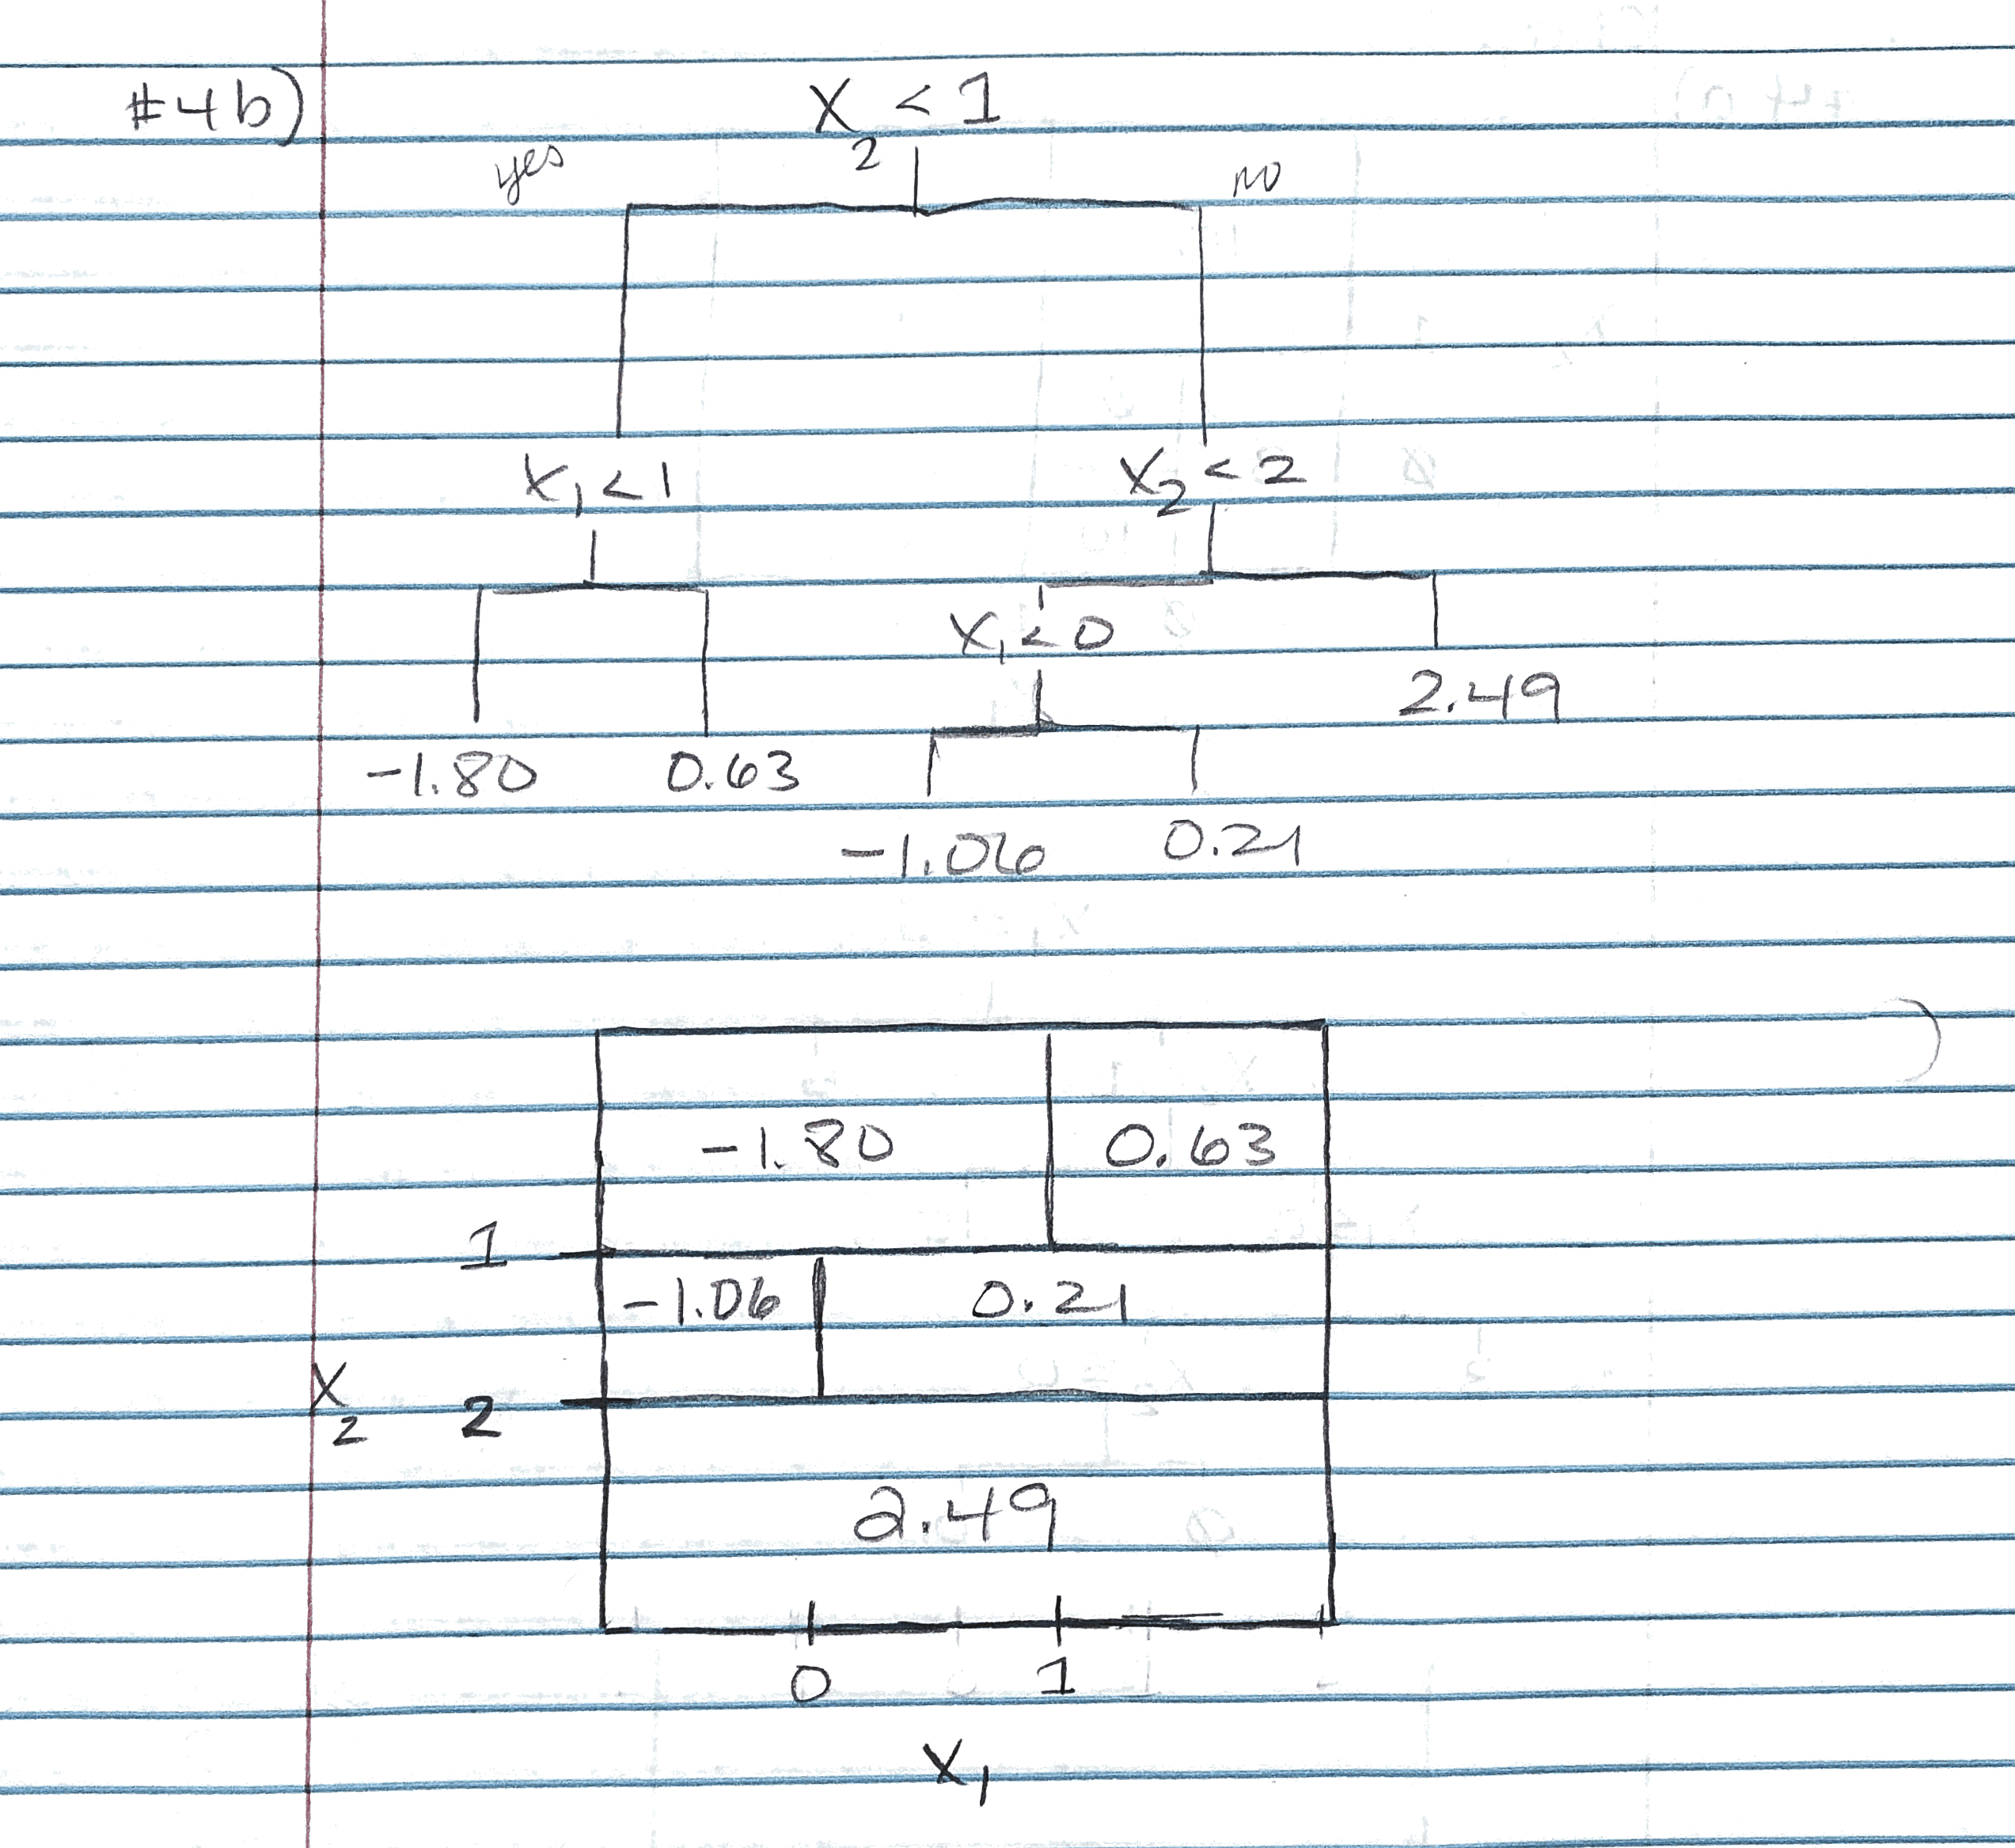 #4b)
X₂ < 1
yes no
X₁ < 1 X₂ < 2
X₁ < 0
2.49
-1.80 0.63
-1.06 0.21
-1.80 0.63
1
-1.06 0.21
X₂ 2
2.49
0 1
X₁